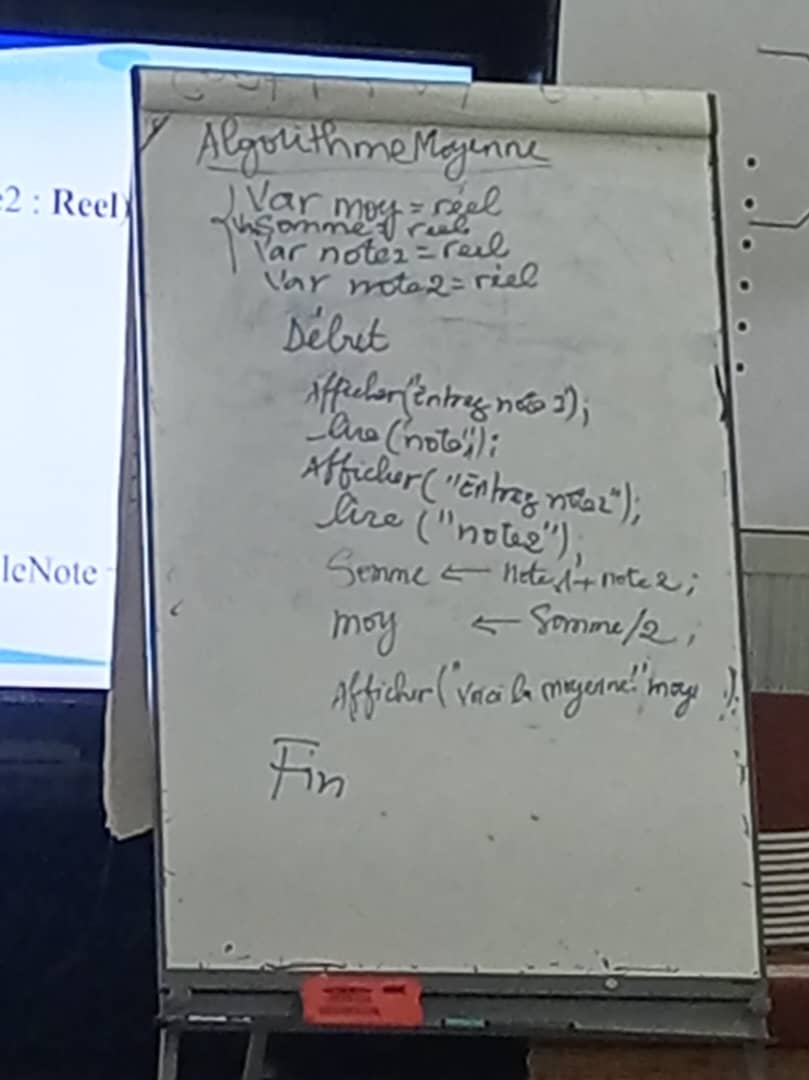 e2 : Reel)
leNote
Algorithme Moyenne
Var moy = réel
Var Somme = reel
Var note1 = reel
Var note2 = réel
Début
Afficher("Entrez note 1");
lire ("note1");
Afficher("Entrez note2");
lire ("note2");
Somme ← Note1 + note2;
moy ← Somme/2;
Afficher("Voici la moyenne:" moy );
Fin